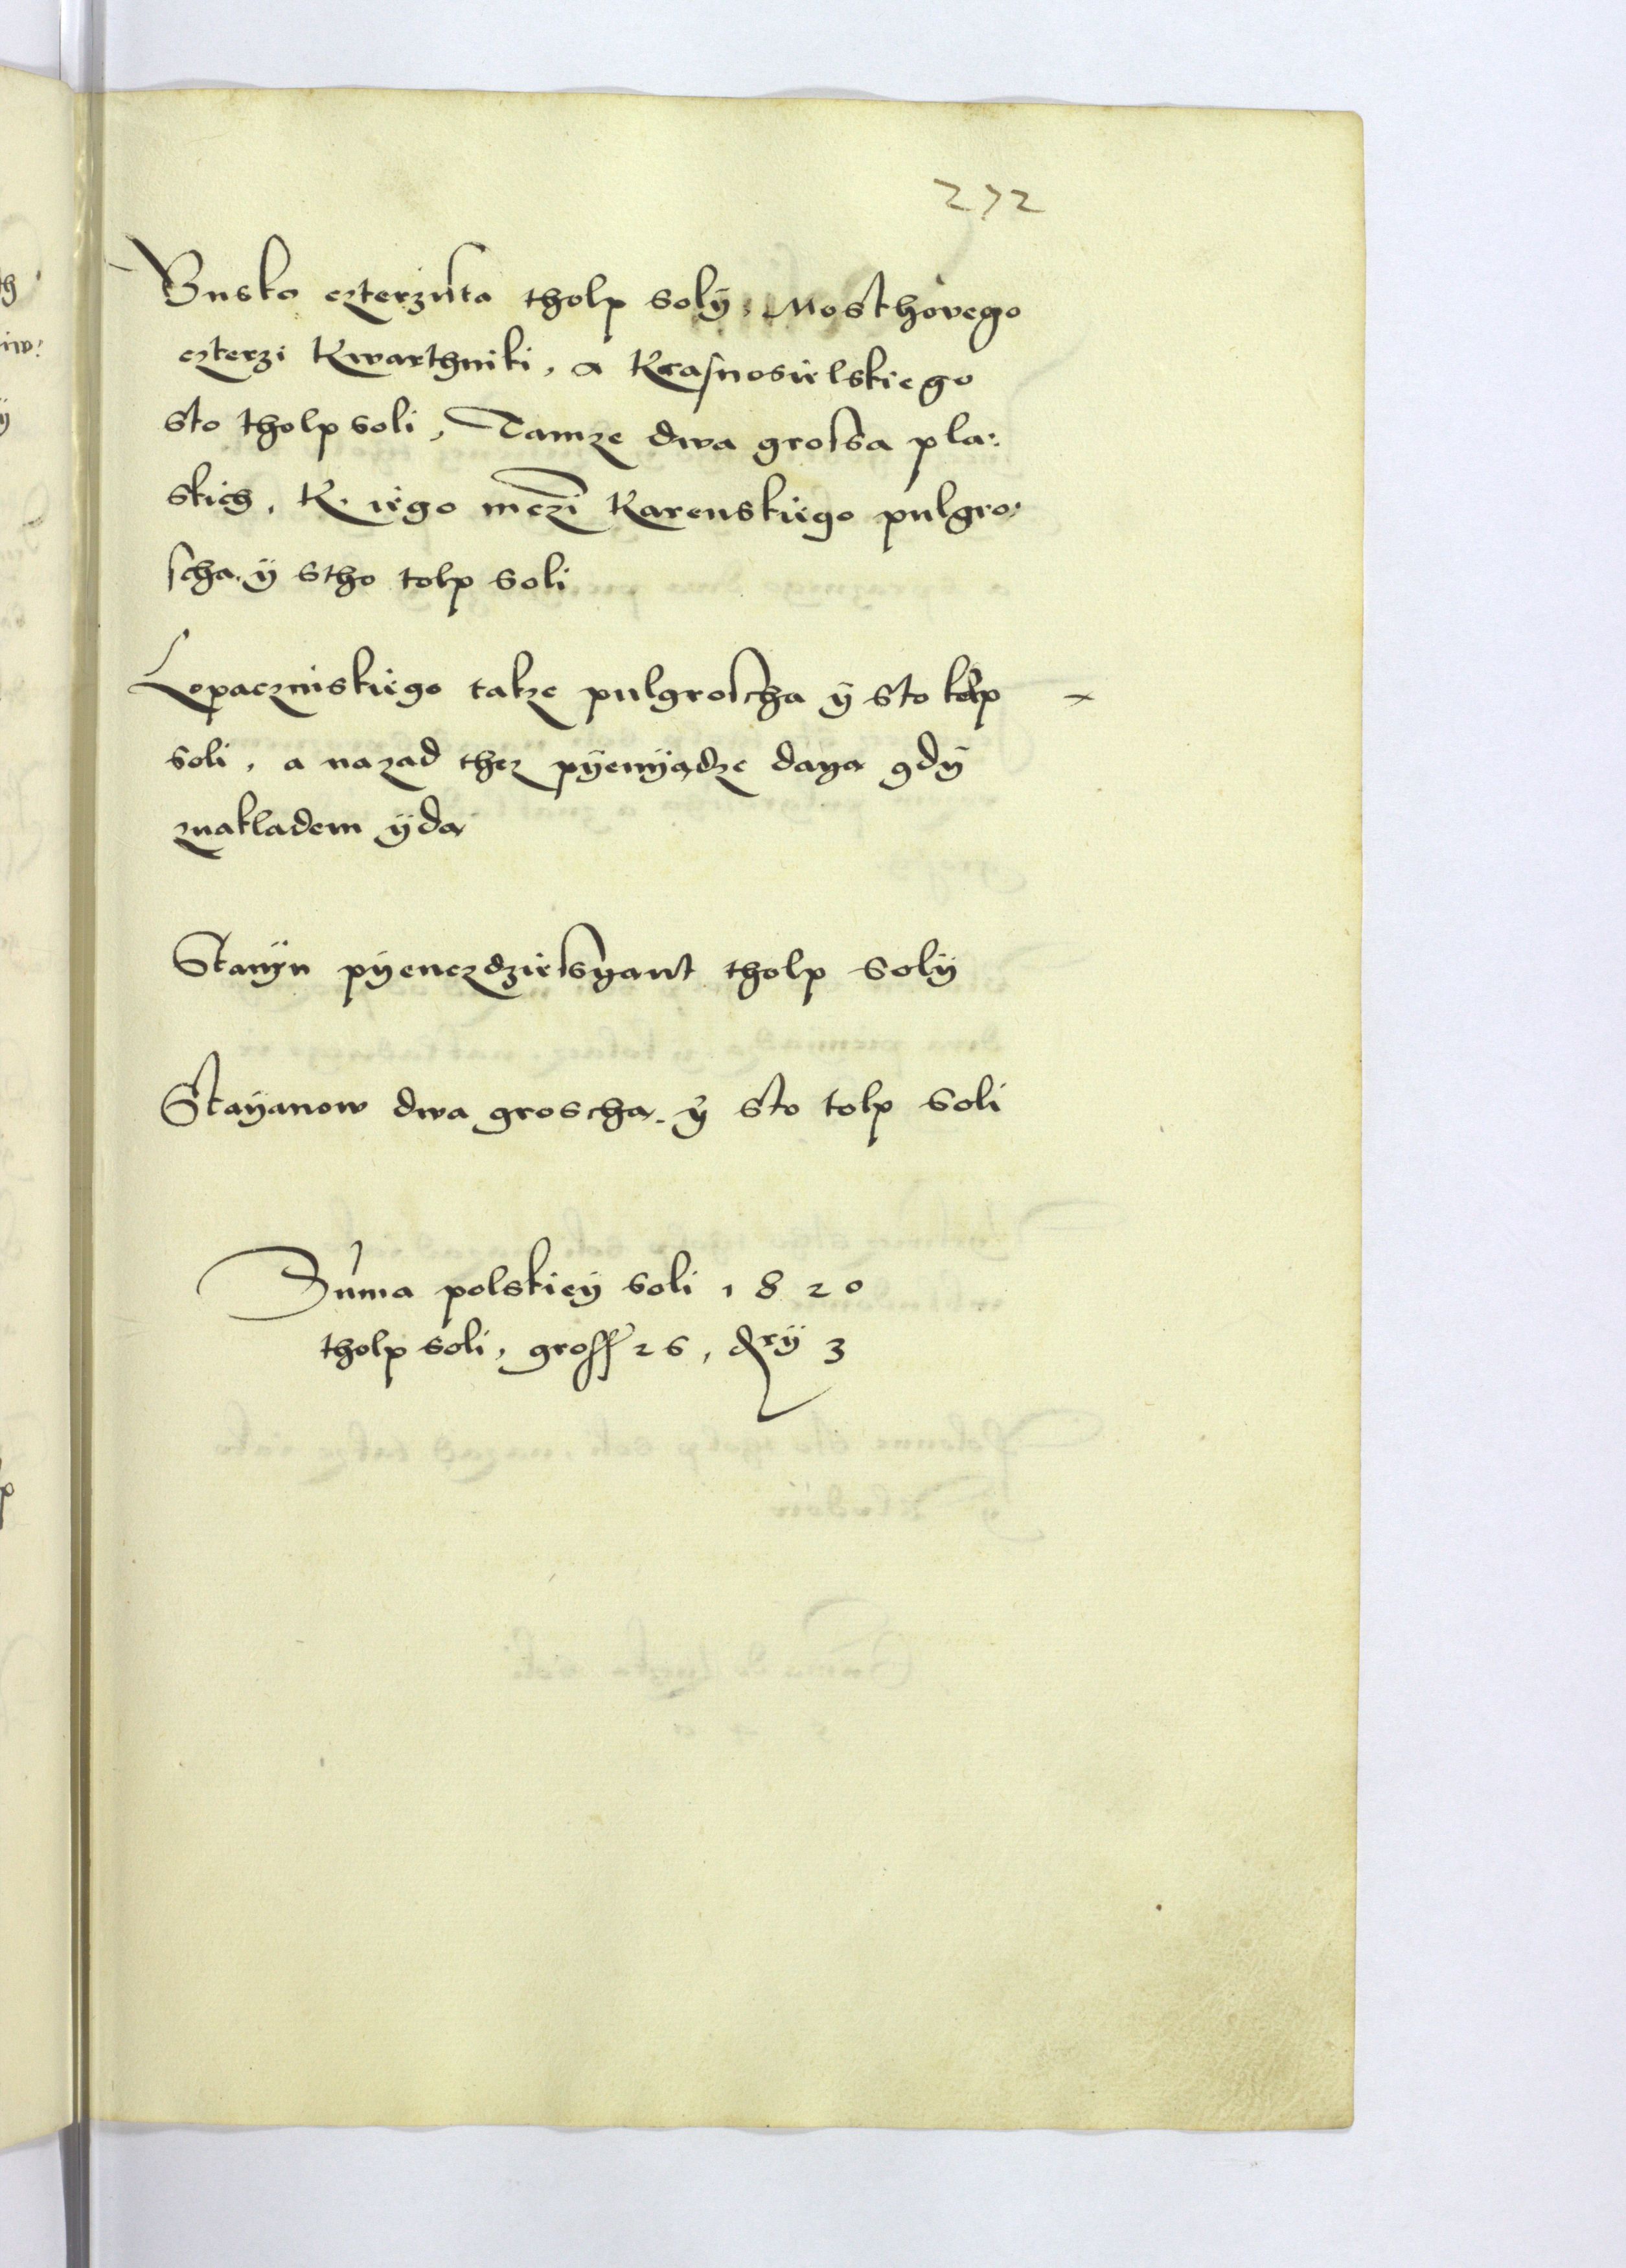 272
Busko czterzista tholp solÿ, Mosthovego
czterzi Kwarthniki, a Krasnosielskiego
sto tholp soli, Tamze dwa grossa pla:
skich, K. iego mczi Karenskiego pulgro:
scha. ÿ stho tolp soli
Lopaczniskiego takze pulgroscha ÿ sto tolp
soli, a nazad thez pÿenÿądze daya gdÿ
znakladem ÿda
Stanÿn pÿenczdziesÿant tholp solÿ
Stayanow dwa groscha. ÿ sto tolp soli
Suma polskieÿ soli 1820
tholp soli, gross 26, qrÿ 3